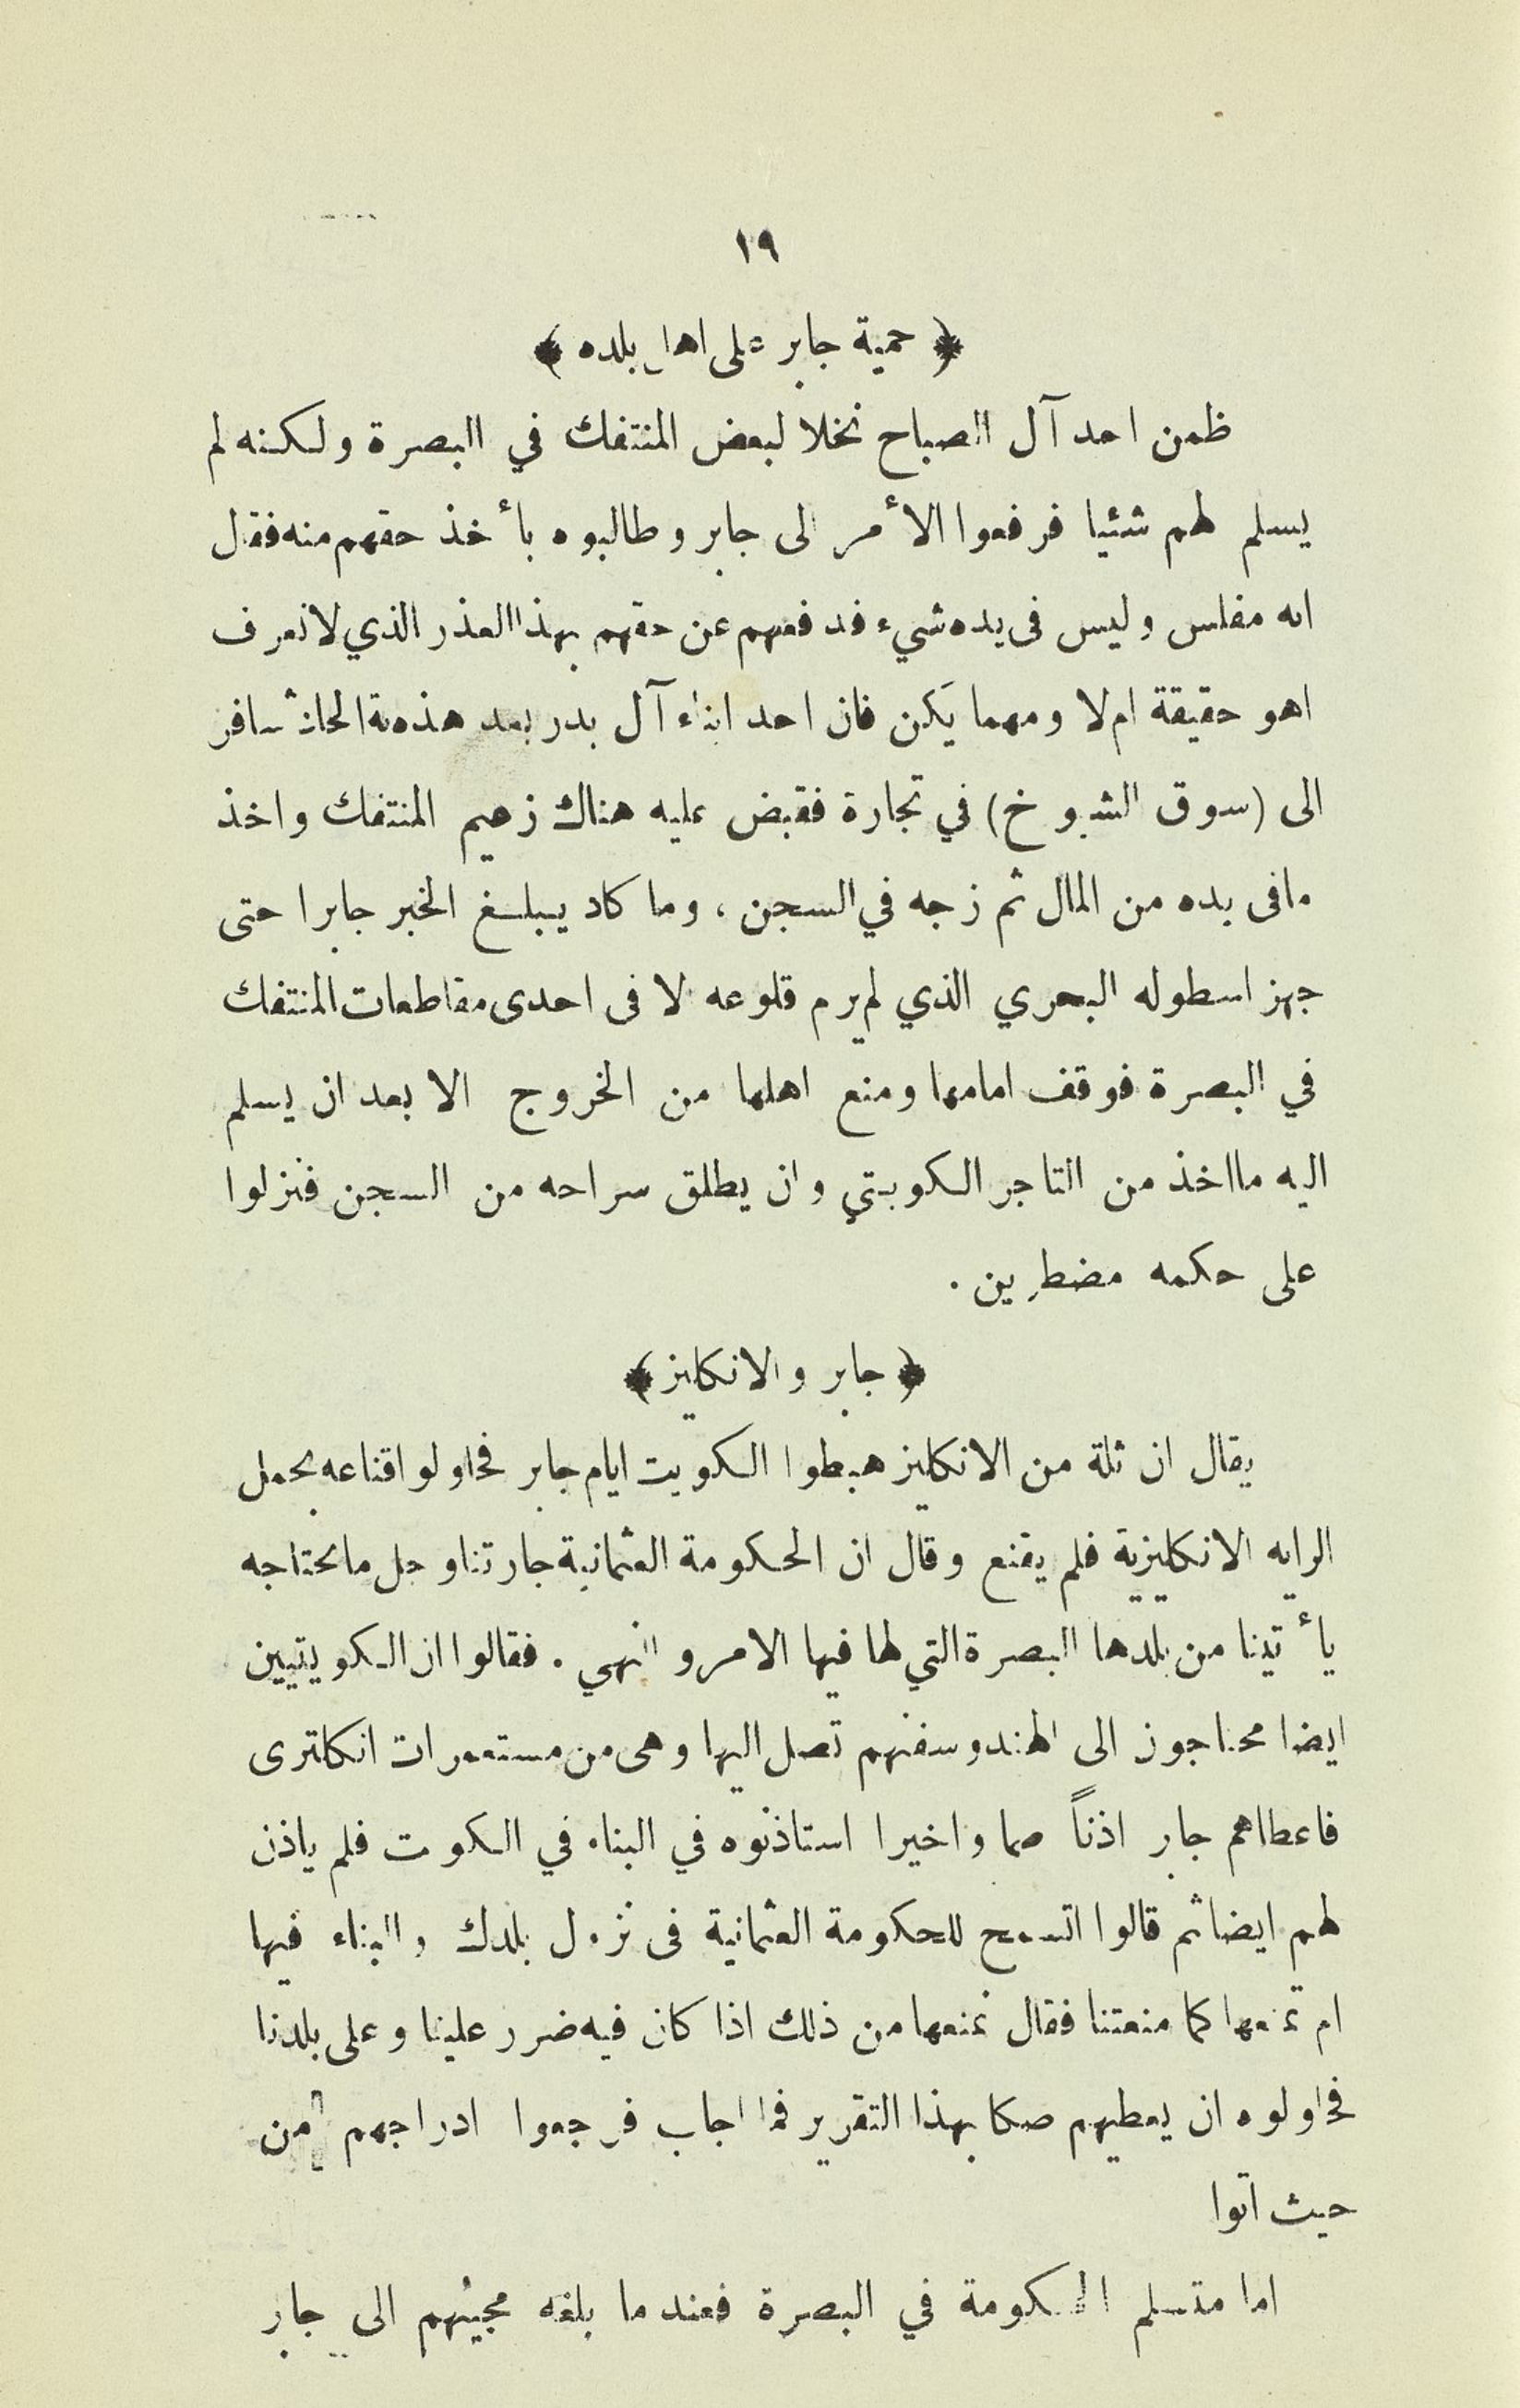 ١٩
﴿ حمية جابر على اهل بلده ﴾
ظمن احد آل الصباح نخلا لبعض المنتفك في البصرة ولكنه لم
يسلم لهم شئيا فرفعوا الأمر الى جابر وطالبوه بأخذ حقهم منه فقال
انه مفلس وليس فى يده شيء فدفعهم عن حقهم بهذا العذر الذي لانعرف
اهو حقيقة ام لا ومهما يكن فان احد ابناء آل بدر بعد هذه سافر
الى (سوق الشيوخ) في تجارة فقبض عليه هناك زعيم المنتفك واخذ
مافى يده من المال ثم زجه في السجن ، وما كاد يبلغ الخبر جابرا حتى
جهز اسطوله البحري الذي لم يرم قلوعه الا فى احدى مقاطعات المنتفك
في البصرة فوقف امامها ومنع اهلها من الخروج الا بعد ان يسلم
اليه مااخذ من التاجر الكويتي وان يطلق سراحه من السجن فنزلوا
على حكمه مضطرين .
﴿ جابر والانكليز ﴾
يقال ان ثلة من الانكليز هبطوا الكويت ايام جابر فحاولوا اقناعه بحمل
الرايه الانكليزية فلم يقنع وقال ان الحكومة العثمانية جارتنا وجل مانحتاجه
يأتينا من بلدها البصرة التي لها فيها الامر والنهي . فقالوا ان الكويتيين
ايضا محتاجون الى الهند وسفنهم تصل اليها وهى من مستعمرات انكلترى
فاعطاهم جابر اذناً صما واخيرا استاذنوه في البناء في الكويت فلم ياذن
لهم ايضا ثم قالوا اتسمح للحكومة العثمانية فى نزول بلدك والبناء فيها
ام تمنعها كما منعتنا فقال نمنعها من ذلك اذا كان فيه ضرر علينا وعلى بلدنا
فحاولوه ان يعطيهم صكا بهذا التقرير فما اجاب فرجعوا ادراجهم من
حيث اتوا
اما متسلم الحكومة في البصرة فعند ما بلغه مجيئهم الى جابر